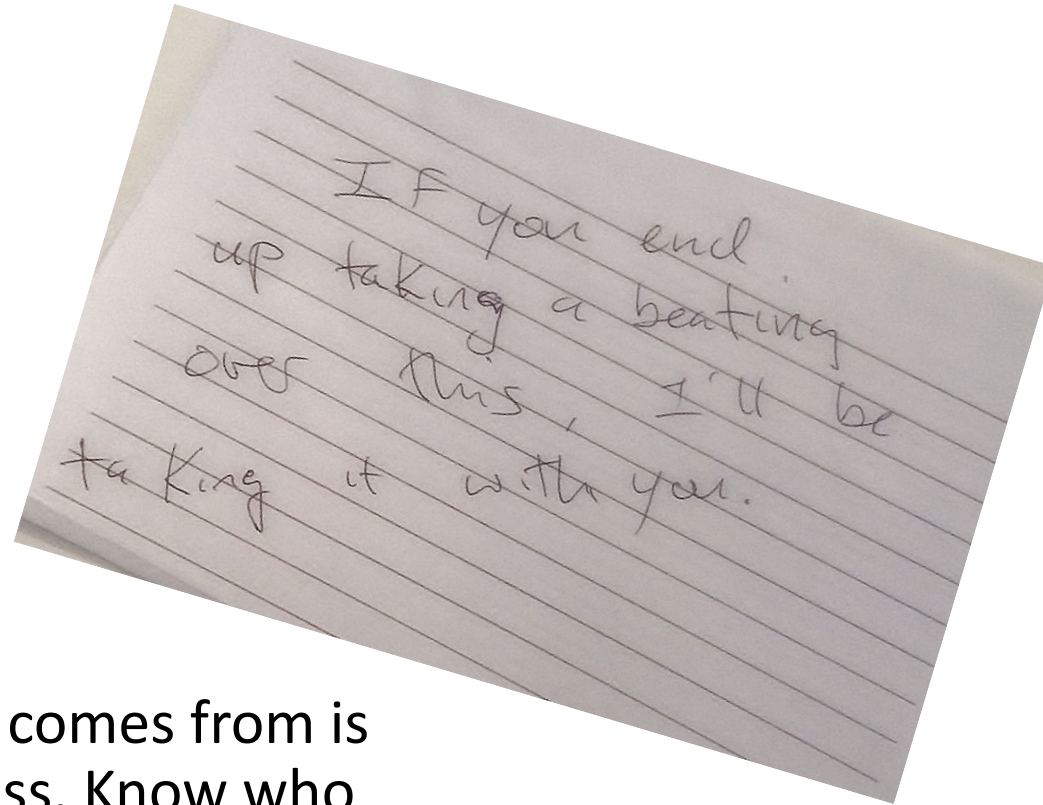 If you end
up taking a beating
over this, I'll be
taking it with you.
comes from is
ss. Know who